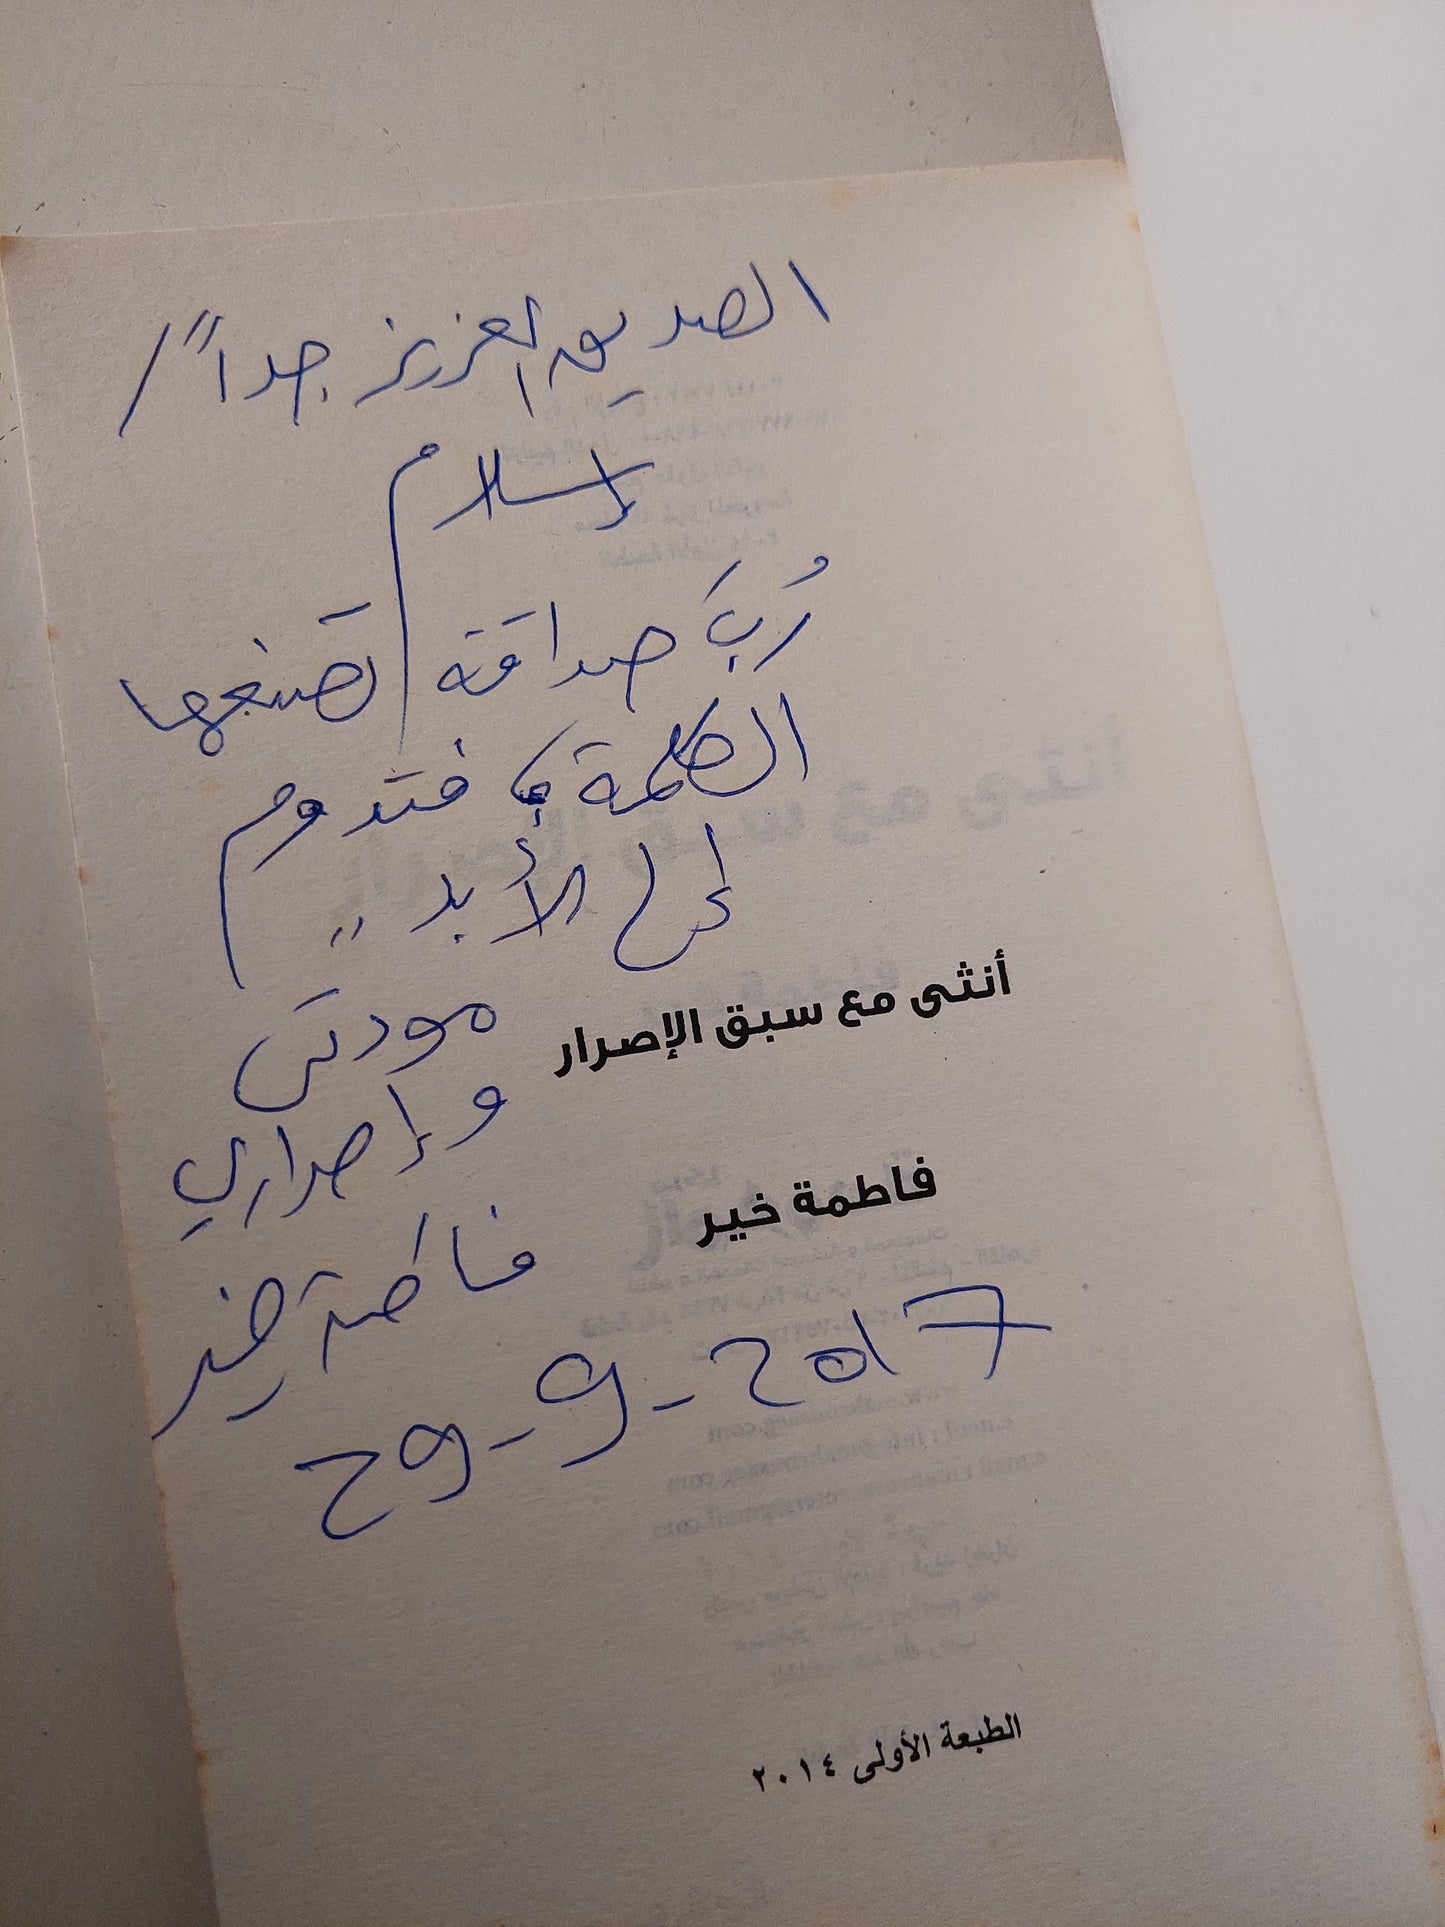 الصديق العزيز جداً /
إسلام
رُبَ صداقة تصنعها
الكلمة، فتدوم
إلى الأبد ..
مودتى
وإصراري
فاطمة خير
29-9-2017
أنثى مع سبق الإصرار
فاطمة خير
الطبعة الأولى ٢٠١٤